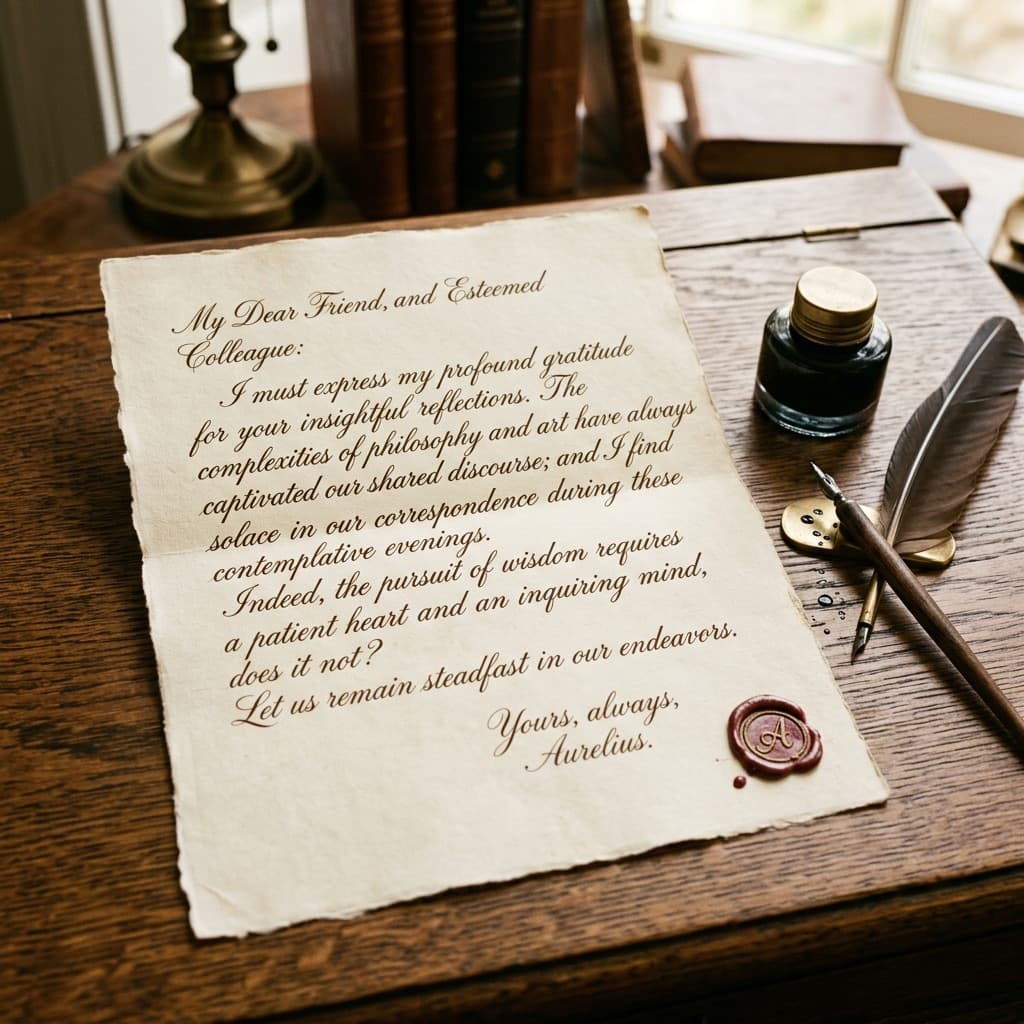 My Dear Friend, and Esteemed
Colleague:
I must express my profound gratitude
for your insightful reflections. The
complexities of philosophy and art have always
captivated our shared discourse; and I find
solace in our correspondence during these
contemplative evenings.
Indeed, the pursuit of wisdom requires
a patient heart and an inquiring mind,
does it not?
Let us remain steadfast in our endeavors.
Yours, always,
Aurelius.
A